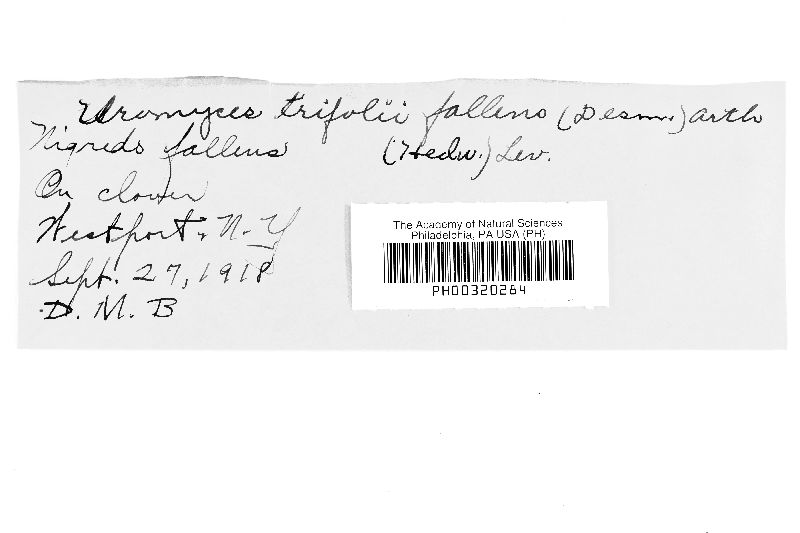 Uromyces trifolii fallens (Desm.) Arth
Nigredo fallens (Hedw.) Lev.
On clover
Westport, N-Y
Sept. 27, 1918
D. M. B
The Academy of Natural Sciences
Philadelphia, PA USA (PH)
PH00320264